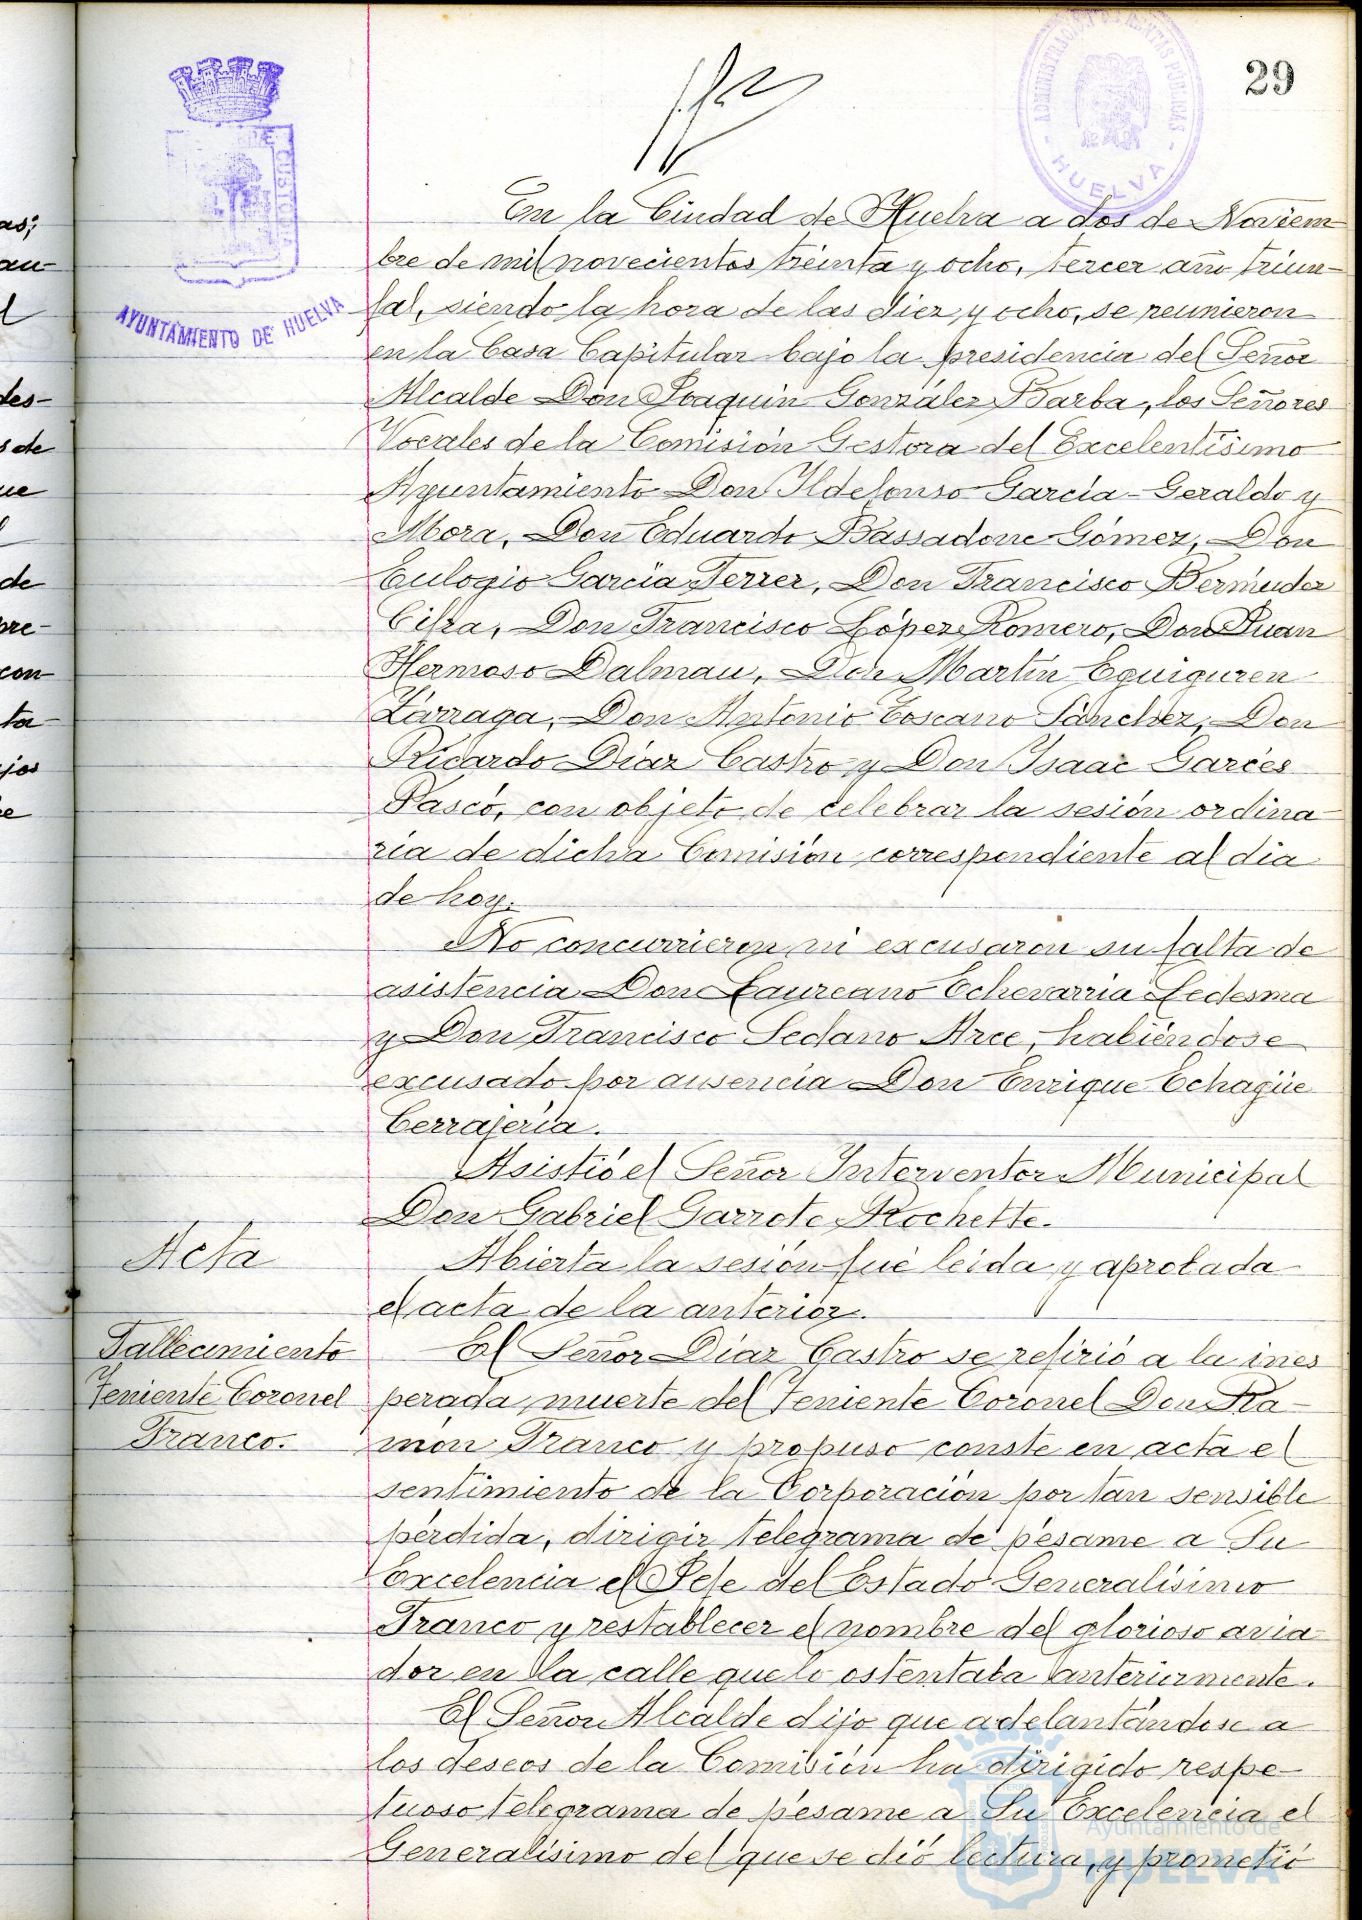 29
ADMINISTRACIÓN DE RENTAS PÚBLICAS
- HUELVA -
CUSTODIA
AYUNTAMIENTO DE HUELVA
as;
au-
l
des-
s de
ue
de
pre-
con
ta-
jos
e
En la Ciudad de Huelva a dos de Noviem-
bre de mil novecientos treinta y ocho, tercer año triun-
fal, siendo la hora de las diez y ocho, se reunieron
en la Casa Capitular bajo la presidencia del Señor
Alcalde Don Joaquin González Barba, los Señores
Vocales de la Comisión Gestora del Excelentísimo
Ayuntamiento Don Ildefonso García-Geraldo y
Mora, Don Eduardo Bassadone Gómez, Don
Eulogio García Ferrer, Don Francisco Bermúdez
Cifra, Don Francisco López Romero, Don Juan
Hermoso Dalmau, Don Martín Eguiguren
Lárraga, Don Antonio Toscano Sánchez, Don
Ricardo Díaz Castro y Don Isaac Garcés
Pascó, con objeto de celebrar la sesión ordina-
ria de dicha Comisión correspondiente al dia
de hoy.
No concurrieron ni excusaron su falta de
asistencia Don Laureano Echevarria Ledesma
y Don Francisco Sedano Arce, habiéndose
excusado por ausencia Don Enrique Echagüe
Cerrajería.
Asistió el Señor Interventor Municipal
Don Gabriel Garrote Rochette.
Acta
Abierta la sesión fué leida y aprobada
el acta de la anterior.
Fallecimiento
Teniente Coronel
Franco.
El Señor Díaz Castro se refirió a la ines
perada muerte del Teniente Coronel Don Ra-
món Franco y propuso conste en acta el
sentimiento de la Corporación por tan sensible
pérdida, dirigir telegrama de pésame a Su
Excelencia el Jefe del Estado Generalísimo
Franco y restablecer el nombre del glorioso avia
dor en la calle que lo ostentaba anteriormente.
El Señor Alcalde dijo que adelantándose a
los deseos de la Comisión ha dirigido respe-
tuoso telegrama de pésame a Su Excelencia el
Generalísimo del que se dió lectura, y prometió
Ayuntamiento de
HUELVA